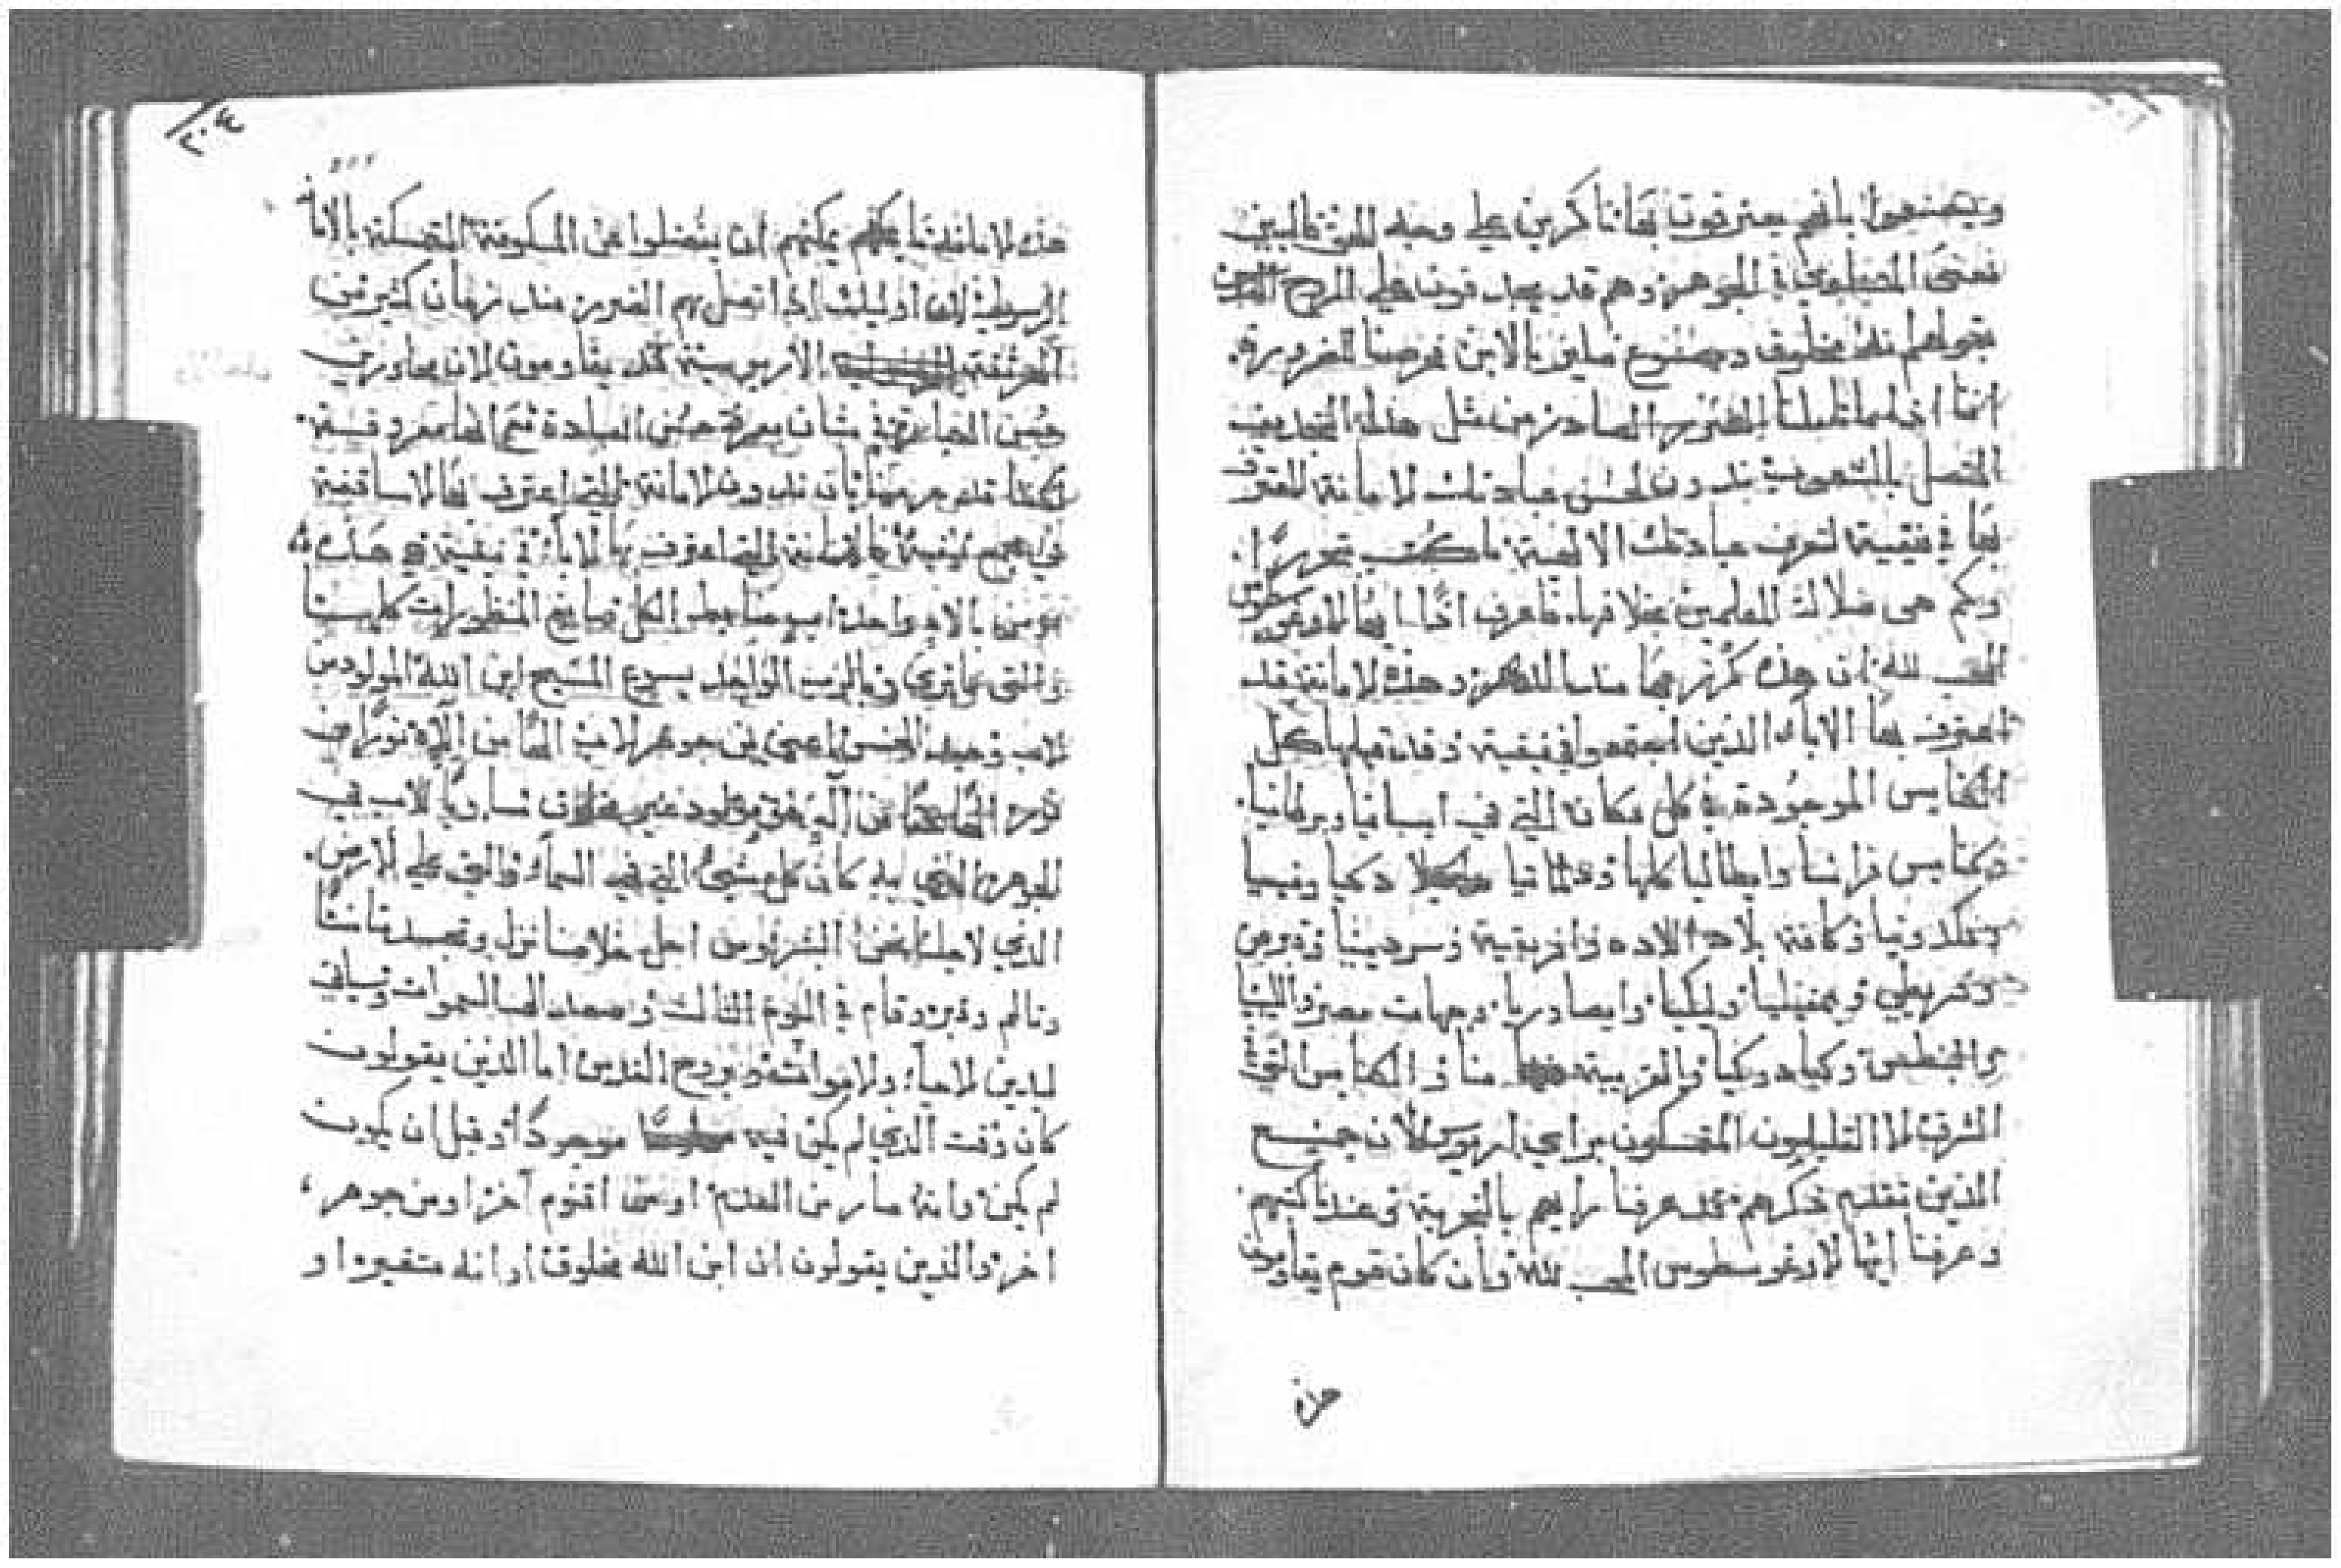 ويصنعوا بانهم يعترفون بها ناكرين على وجه الحق قالبين
معنى المتساوي في الجوهر وهم قد يجدفون على الروح القدس
بقولهم انه مخلوق ومصنوع صاير بالابن فرضنا للضرورة
اننا اذا ما تاملنا الضرر الصادر من مثل هذا التجديف
المتصل بالشعوب ندون لحسن عبادتك الامانة المعترف
بها في نيقية لتعرف عبادتك الالهية ما كتب تحريرًا
وكم هي ضلالة المعلمين بخلافها فاعرف اذًا ايها الاوغوسطوس
المحب لله ان هذه كرز بها منذ الدهر وهذه الامانة قد
اعترف بها الاباء الذين اجتمعوا في نيقية وقد قبلها كل
الكنايس الموجودة في كل مكان التي في اسبانيا وبرطانيا
وكنايس فرانسا وايطاليا كلها ودلماتيا وميسيا
ومكدونيا وكافة بلاد الاده وافريقية وسردينيا وقبرص
وكريطي وبمفيليا وليكيا وايصاوريا وجهات مصر والليبيا
والبنطس وكبادوكيا والقريبة منا والكنايس التي في
الشرق الا القليلون المتمسكون براي اريوس لان جميع
الذين تقدم ذكرهم قد عرفنا رايهم بالتجربة وعندنا كتبهم
وعرفنا ايها الاوغوسطوس المحب لله وان كان قوم يقاومون
هذه
٢٠٤
هذه الامانة يمكنهم ان ينفصلوا عن المسكونة المتمسكة بالامانة
الرسولية لان اوليك اذا اتصل بهم الضرر منذ زمان كثير من
الاريوسية قد يقاومون الان محاورين
حسن العبادة في شان معرفة حسن العبادة مع انها معروفة
لكننا قد عزمنا بان ندون الامانة التي اعترف بها الاساقفة
في مجمع نيقية فالامانة التي اعترف بها الاباء في نيقية هي هذه
نومن بالاه واحد اب ضابط الكل صانع المنظورات كلها
والتي ما ترى وبالرب الواحد يسوع المسيح ابن الله المولود من
الاب وحيد الجنس اعني من جوهر الاب الهًا من اله نورًا من
نور الهًا حقًا من اله حق مولود غير مخلوق مساويًا للاب في
الجوهر الذي به كان كل شي التي في السماء والتي على الارض
الذي لاجلنا نحن البشر ومن اجل خلاصنا نزل وتجسد تانس
وتالم وقبر وقام في اليوم الثالث وصعد الى السموات وسياتي
ليدين الاحياء والاموات وبروح القدس اما الذين يقولون
كان وقت الذي لم يكن فيه موجودًا وقبل ان يكون
لم يكن وانه صار من العدم او من اقنوم آخر او من جوهر
اخر والذين يقولون ان ابن الله مخلوق او انه متغير او